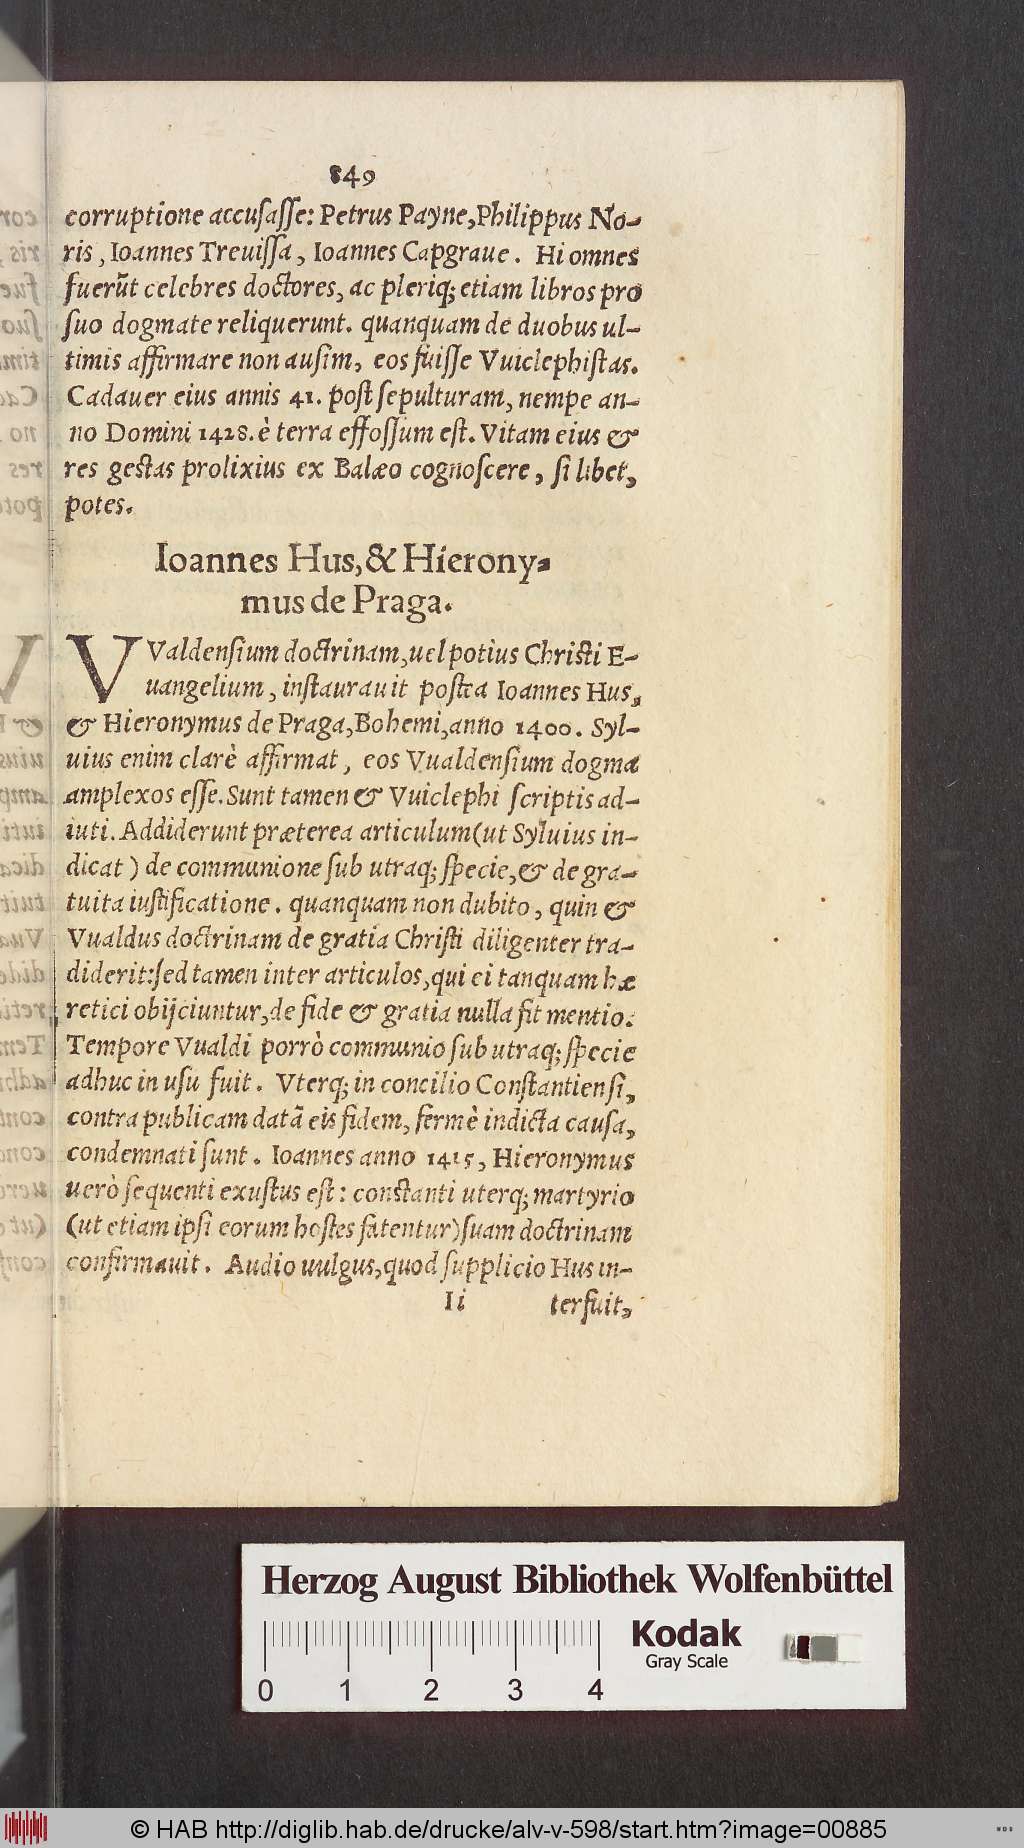 849
corruptione accuſaſſe: Petrus Payne, Philippus No-
ris, Ioannes Treuiſſa, Ioannes Capgraue. Hi omnes
fuerũt celebres doctores, ac pleriq; etiam libros pro
ſuo dogmate reliquerunt. quanquam de duobus ul-
timis affirmare non auſim, eos fuiſſe Vuiclephiſtas.
Cadauer eius annis 41. poſt ſepulturam, nempe an-
no Domini 1428. è terra effoſſum eſt. Vitam eius &
res geſtas prolixius ex Balæo cognoſcere, ſi libet,
potes.
Ioannes Hus, & Hierony-
mus de Praga.
VValdenſium doctrinam, uel potius Chriſti E-
uangelium, inſtaurauit poſtea Ioannes Hus,
& Hieronymus de Praga, Bohemi, anno 1400. Syl-
uius enim clarè affirmat, eos Vualdenſium dogma
amplexos eſſe. Sunt tamen & Vuiclephi ſcriptis ad-
iuti. Addiderunt præterea articulum (ut Syluius in-
dicat) de communione ſub utraq; ſpecie, & de gra-
tuita iuſtificatione. quanquam non dubito, quin &
Vualdus doctrinam de gratia Chriſti diligenter tra-
diderit: ſed tamen inter articulos, qui ei tanquam hæ
retici obijciuntur, de fide & gratia nulla fit mentio.
Tempore Vualdi porrò communio ſub utraq; ſpecie
adhuc in uſu fuit. Vterq; in concilio Conſtantienſi,
contra publicam datã eis fidem, fermè indicta cauſa,
condemnati ſunt. Ioannes anno 1415, Hieronymus
uerò ſequenti exuſtus eſt: conſtanti uterq; martyrio
(ut etiam ipſi eorum hoſtes fatentur) ſuam doctrinam
confirmauit. Audio uulgus, quod ſupplicio Hus in-
Ii terfuit,
Herzog August Bibliothek Wolfenbüttel
Kodak
Gray Scale
0 1 2 3 4
© HAB http://diglib.hab.de/drucke/alv-v-598/start.htm?image=00885